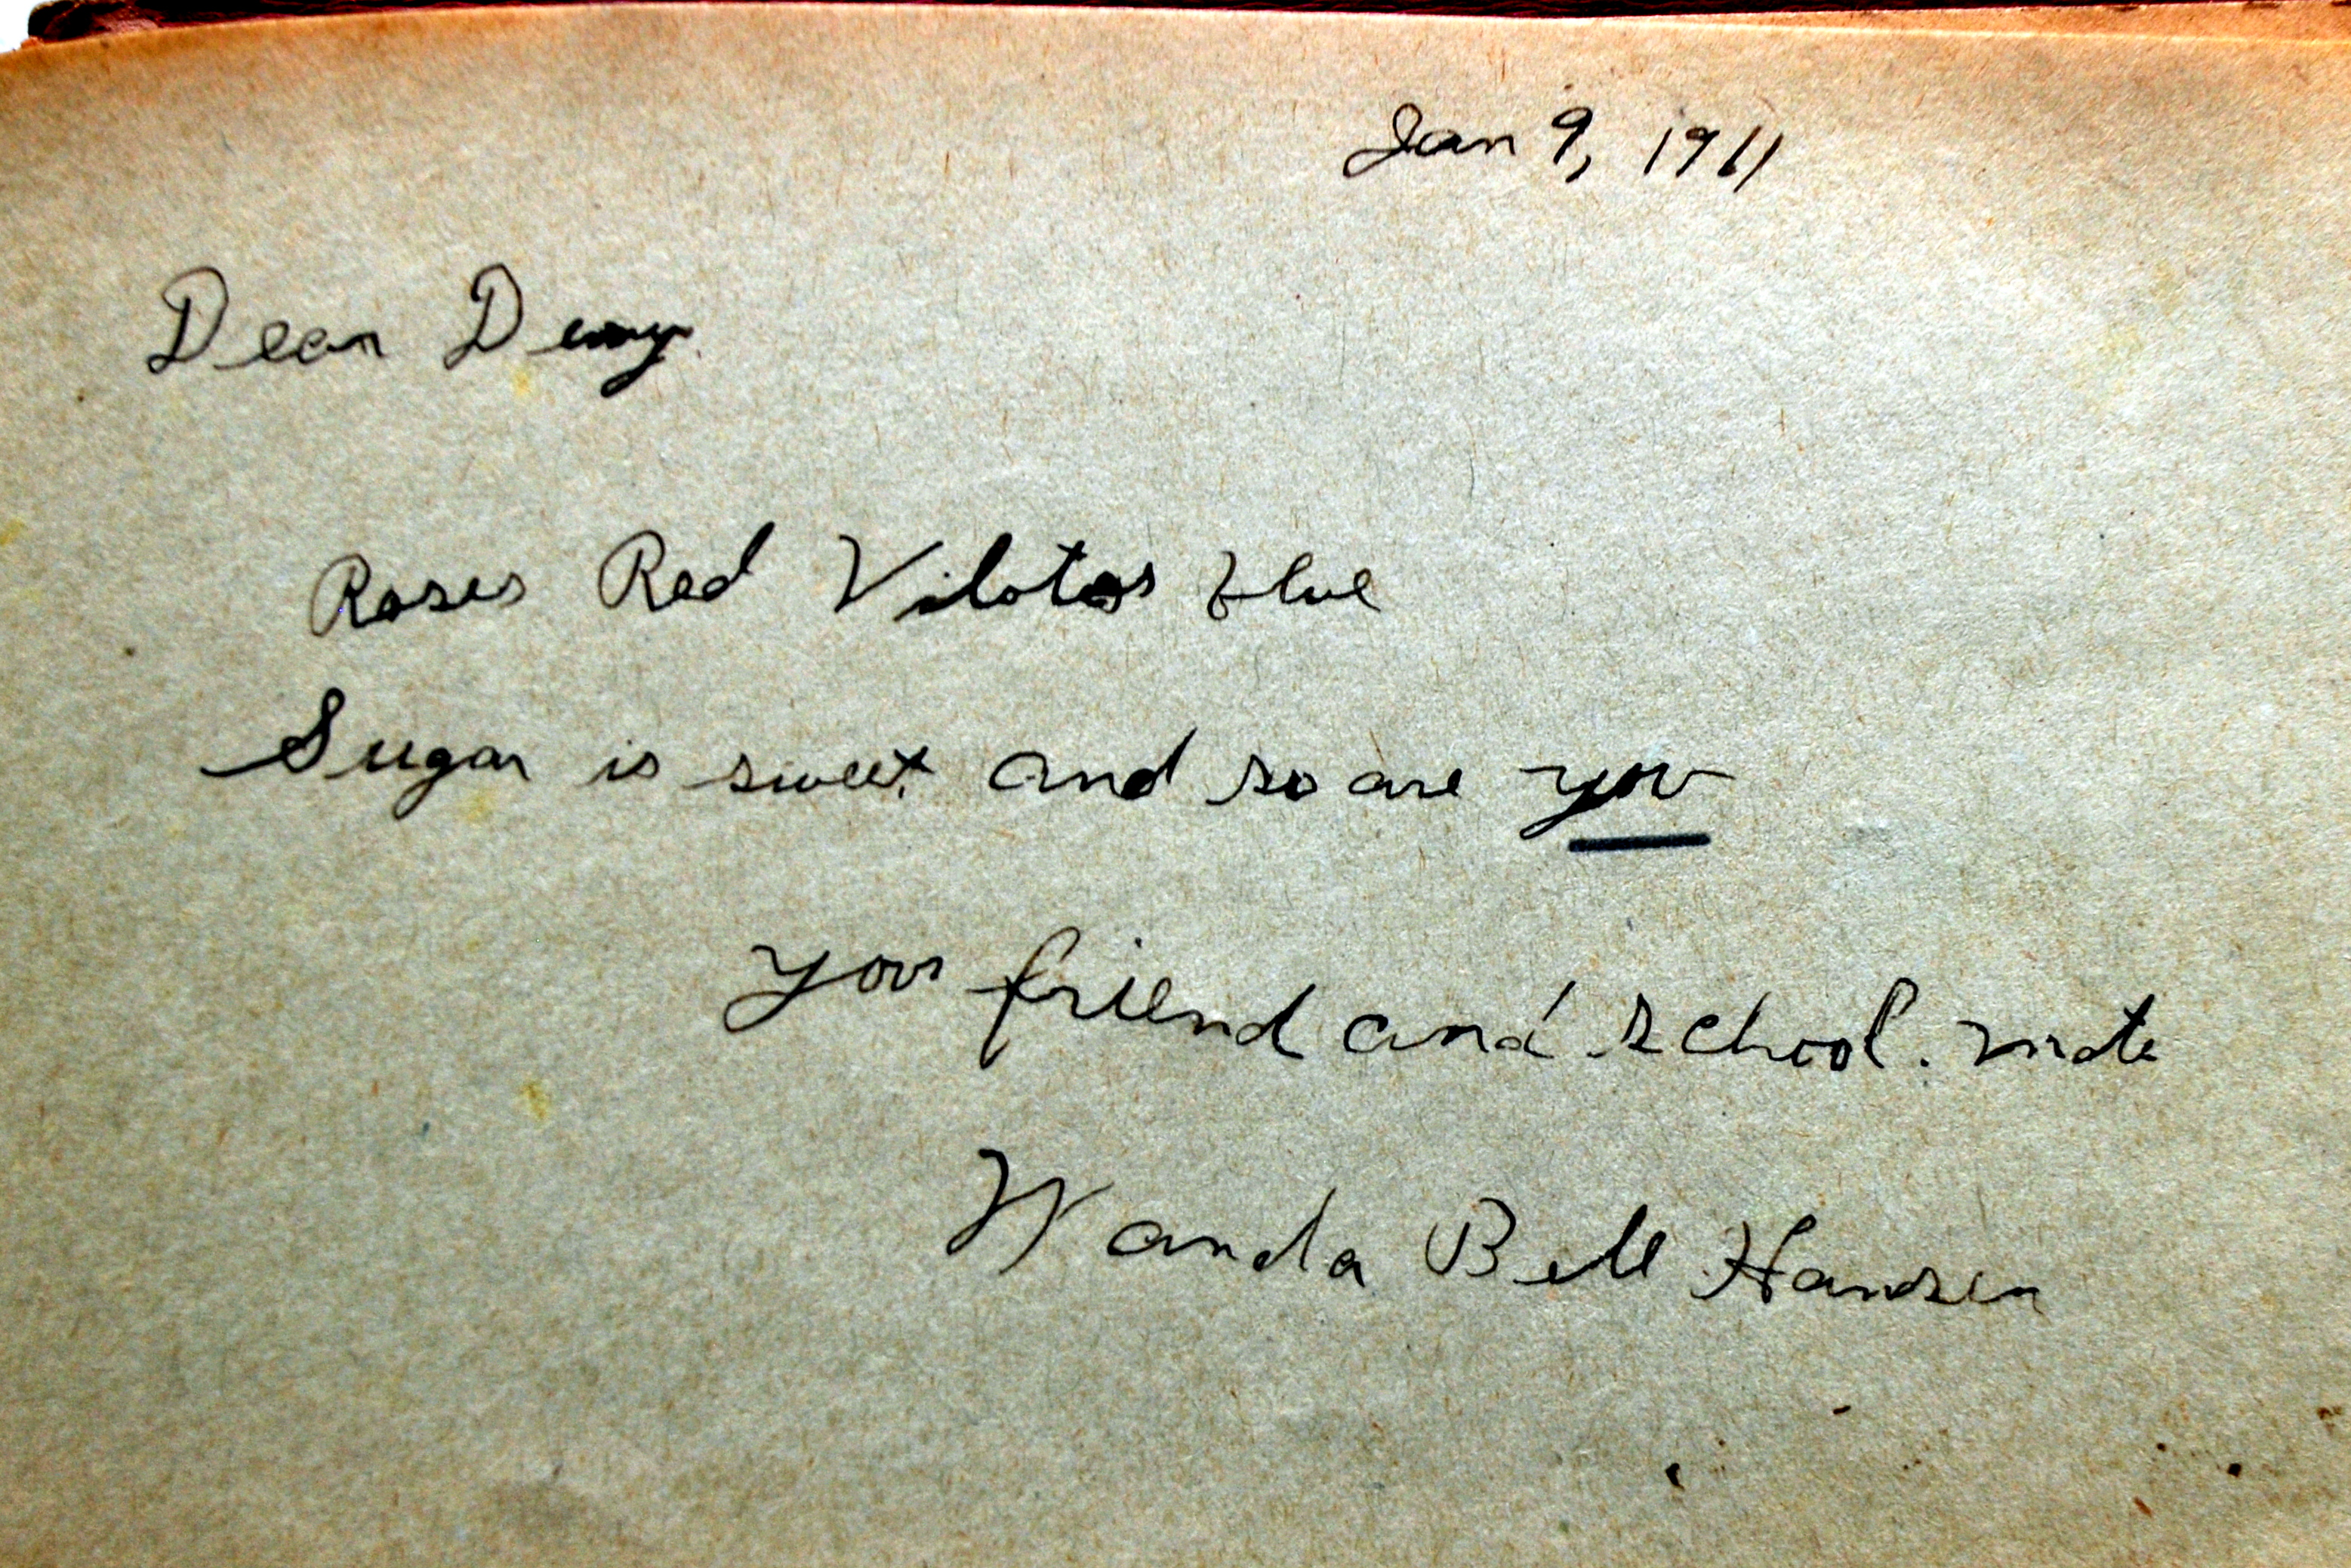 Jan 9, 1911
Dear
Roses Red Vilotes blue
Sugar is sweet and so are you
your friend and school. mate
Wanda Bell Hansen